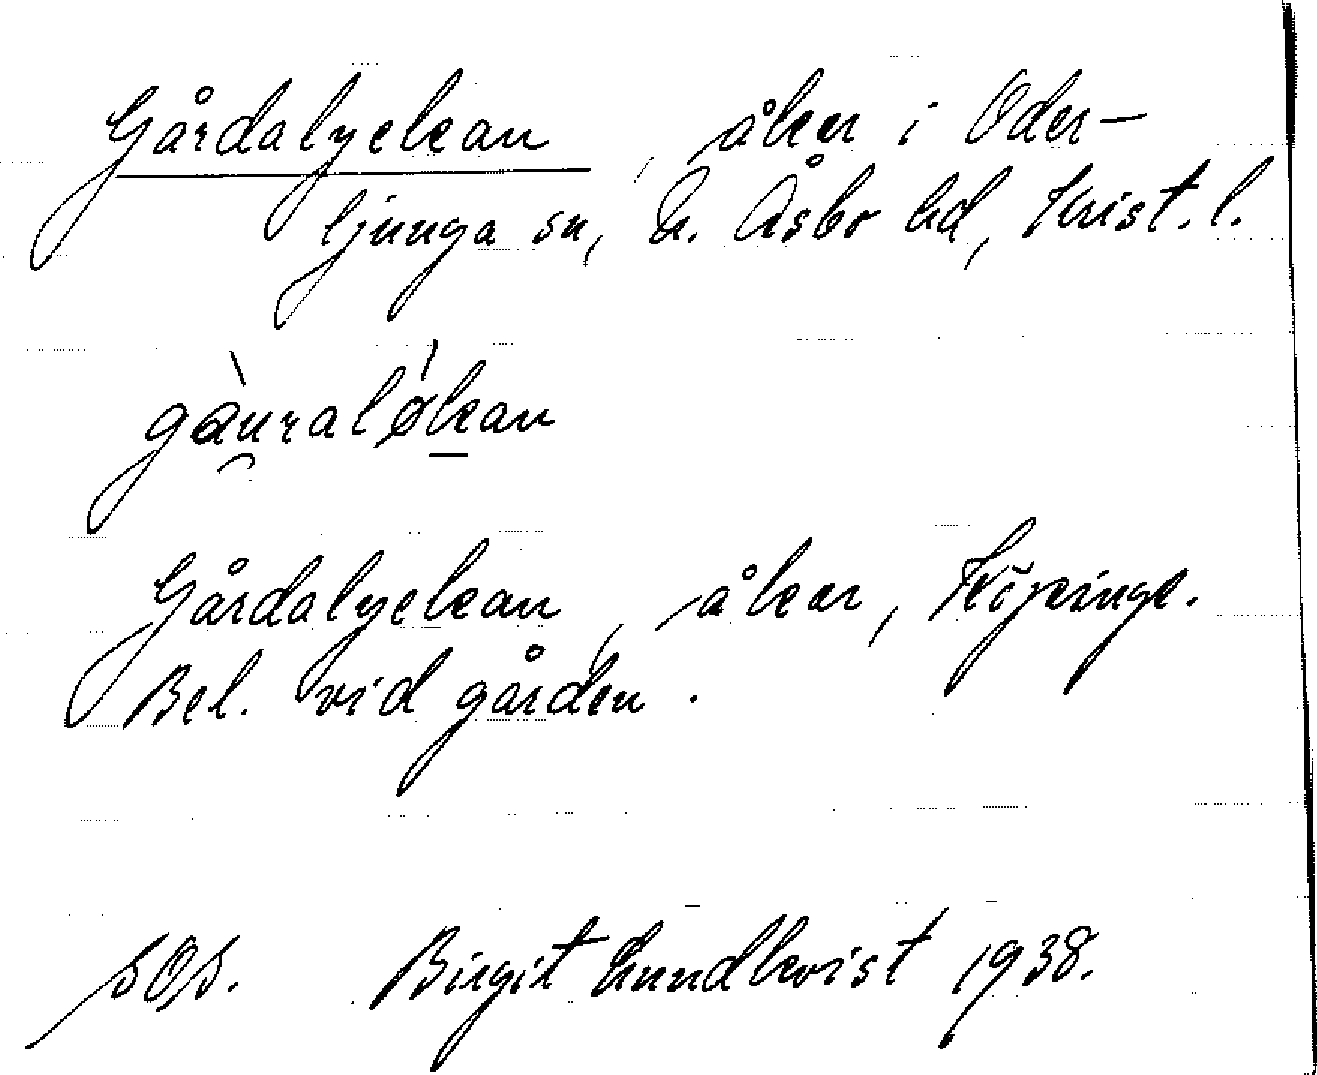 Gårdalyckan, åker i Oder-
ljunga sn, N. Åsbo hd, Krist. l.
gàu̯ralǿkan
Gårdalyckan, åker, Köpinge.
Bel. vid gården.
SOS. Birgit Lundkvist 1938.